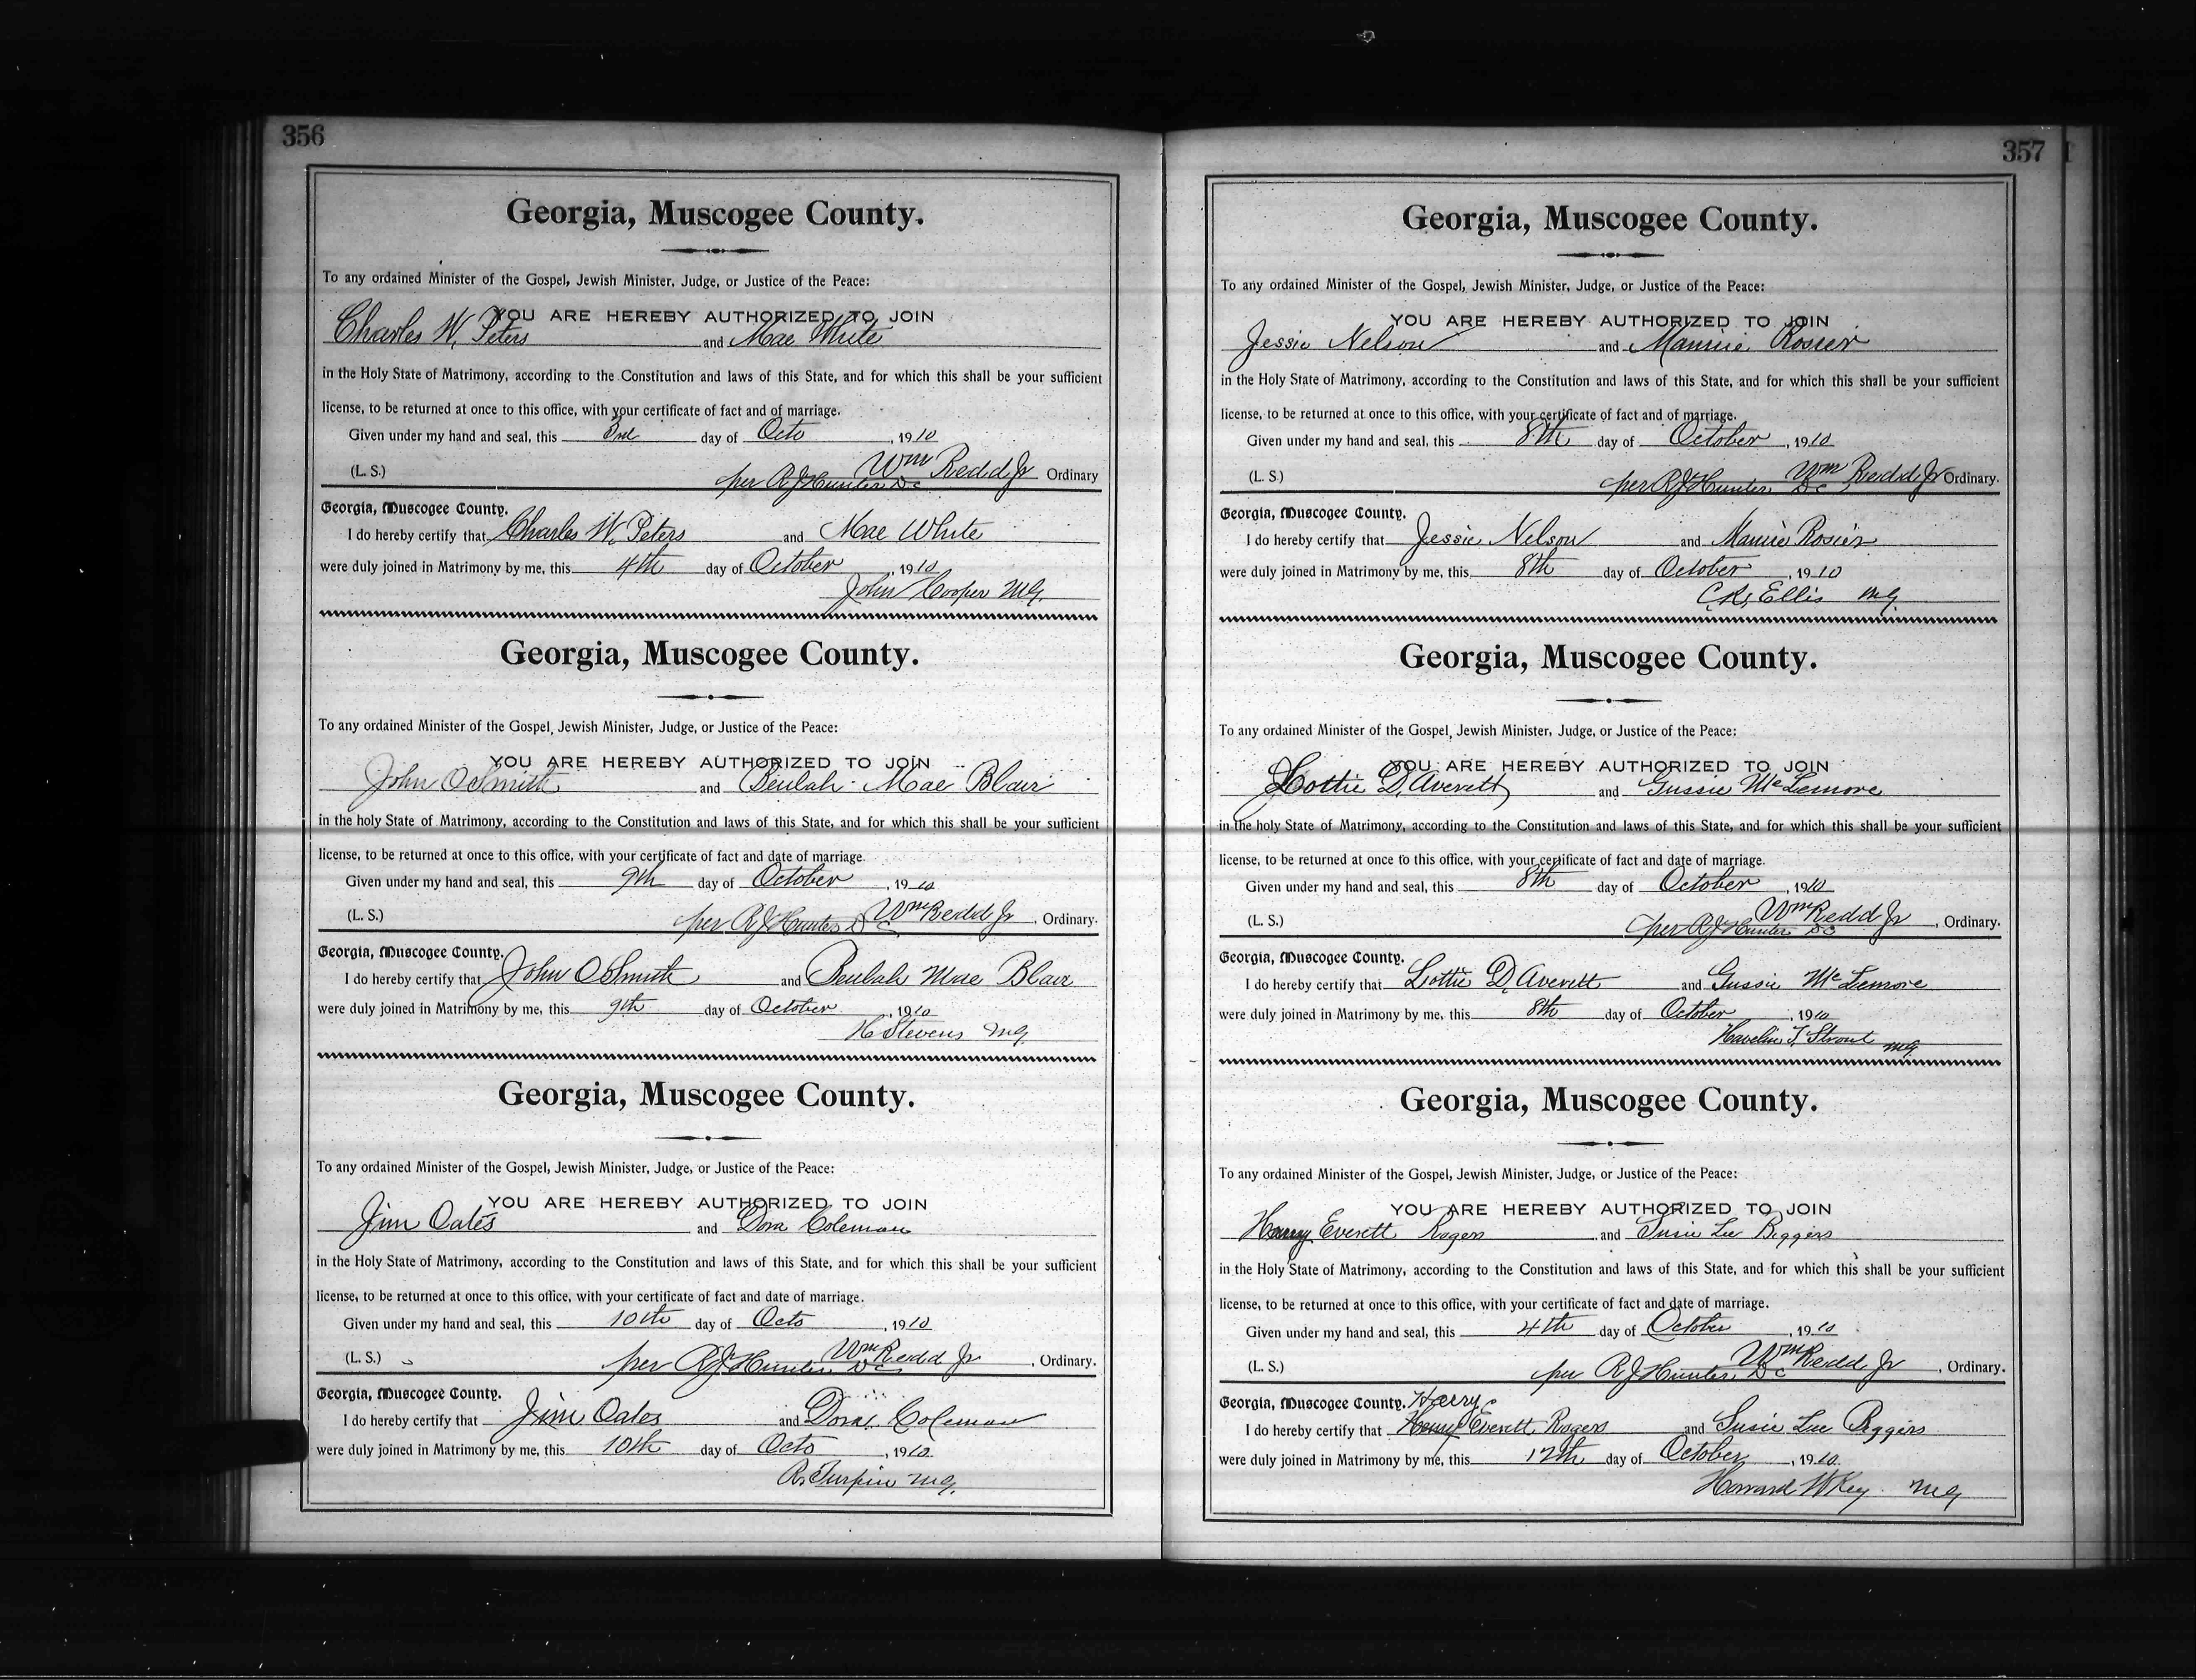 356
Georgia, Muscogee County.
To any ordained Minister of the Gospel, Jewish Minister, Judge, or Justice of the Peace:
YOU ARE HEREBY AUTHORIZED TO JOIN
Charles W. Peters and Mae White
in the Holy State of Matrimony, according to the Constitution and laws of this State, and for which this shall be your sufficient
license, to be returned at once to this office, with your certificate of fact and of marriage.
Given under my hand and seal, this 3rd day of Octo, 1910
(L. S.) Wm Redd Jr Ordinary
per R J Hunter DC
Georgia, Muscogee County.
I do hereby certify that Charles W. Peters and Mae White
were duly joined in Matrimony by me, this 4th day of October, 1910
John Cooper MG.
Georgia, Muscogee County.
To any ordained Minister of the Gospel, Jewish Minister, Judge, or Justice of the Peace:
YOU ARE HEREBY AUTHORIZED TO JOIN
John O Smith and Beulah Mae Blair
in the holy State of Matrimony, according to the Constitution and laws of this State, and for which this shall be your sufficient
license, to be returned at once to this office, with your certificate of fact and date of marriage.
Given under my hand and seal, this 9th day of October, 1910
(L. S.) Wm Redd Jr, Ordinary.
per R J Hunter DC
Georgia, Muscogee County.
I do hereby certify that John O Smith and Beulah Mae Blair
were duly joined in Matrimony by me, this 9th day of October, 1910
H Stevens MG
Georgia, Muscogee County.
To any ordained Minister of the Gospel, Jewish Minister, Judge, or Justice of the Peace:
YOU ARE HEREBY AUTHORIZED TO JOIN
Jim Oates and Dora Coleman
in the Holy State of Matrimony, according to the Constitution and laws of this State, and for which this shall be your sufficient
license, to be returned at once to this office, with your certificate of fact and date of marriage.
Given under my hand and seal, this 10th day of Octo, 1910
(L. S.) Wm Redd Jr, Ordinary.
per R J Hunter DC
Georgia, Muscogee County.
I do hereby certify that Jim Oates and Dora Coleman
were duly joined in Matrimony by me, this 10th day of Octo, 1910.
R. Turpin MG.
357
Georgia, Muscogee County.
To any ordained Minister of the Gospel, Jewish Minister, Judge, or Justice of the Peace:
YOU ARE HEREBY AUTHORIZED TO JOIN
Jessie Nelson and Mamie Rosier
in the Holy State of Matrimony, according to the Constitution and laws of this State, and for which this shall be your sufficient
license, to be returned at once to this office, with your certificate of fact and of marriage.
Given under my hand and seal, this 8th day of October, 1910
(L. S.) Wm Redd Jr Ordinary.
per R J Hunter DC
Georgia, Muscogee County.
I do hereby certify that Jessie Nelson and Mamie Rosier
were duly joined in Matrimony by me, this 8th day of October, 1910
Ellis MG.
Georgia, Muscogee County.
To any ordained Minister of the Gospel, Jewish Minister, Judge, or Justice of the Peace:
YOU ARE HEREBY AUTHORIZED TO JOIN
Lottie D. Averett and Gussie McLemore
in the holy State of Matrimony, according to the Constitution and laws of this State, and for which this shall be your sufficient
license, to be returned at once to this office, with your certificate of fact and date of marriage.
Given under my hand and seal, this 8th day of October, 1910
(L. S.) Wm Redd Jr, Ordinary.
per R J Hunter DC
Georgia, Muscogee County.
I do hereby certify that Lottie D. Averett and Gussie McLemore
were duly joined in Matrimony by me, this 8th day of October, 1910
MG
Georgia, Muscogee County.
To any ordained Minister of the Gospel, Jewish Minister, Judge, or Justice of the Peace:
YOU ARE HEREBY AUTHORIZED TO JOIN
Harry Everett Rogers and Susie Lee Biggers
in the Holy State of Matrimony, according to the Constitution and laws of this State, and for which this shall be your sufficient
license, to be returned at once to this office, with your certificate of fact and date of marriage.
Given under my hand and seal, this 4th day of October, 1910
(L. S.) Wm Redd Jr, Ordinary.
per R J Hunter, DC
Georgia, Muscogee County. Harry E
I do hereby certify that Everett Rogers and Susie Lee Biggers
were duly joined in Matrimony by me, this 12th day of October, 1910.
Howard W Key MG